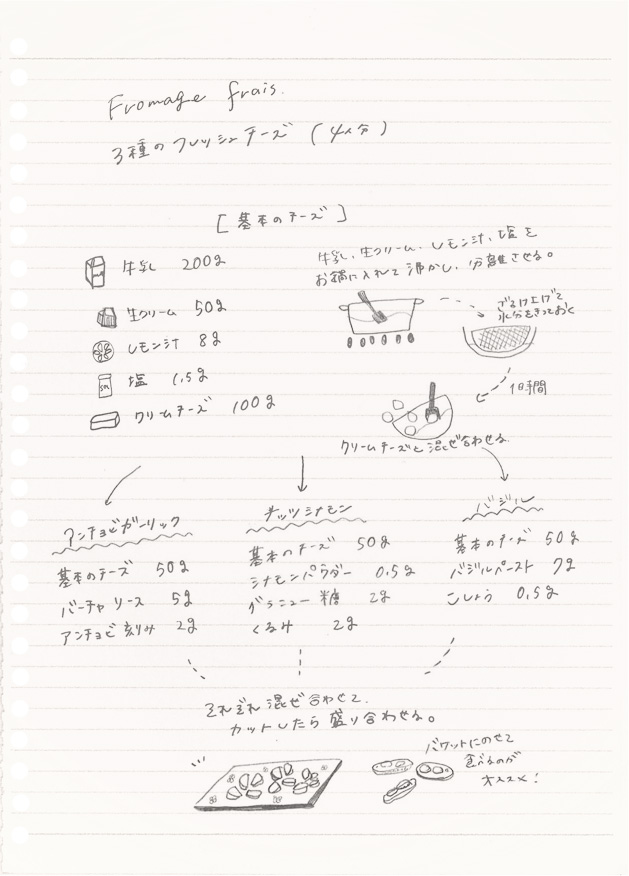 Fromage frais.
3種のフレッシュチーズ (4人分)
[基本のチーズ]
牛乳 200g
生クリーム 50g
レモン汁 8g
塩 1.5g
クリームチーズ 100g
牛乳、生クリーム、レモン汁、塩を
お鍋に入れて沸かし、分離させる。
ざるに上げて
水分をきっておく
1日時間
クリームチーズと混ぜ合わせる
アンチョビガーリック
基本のチーズ 50g
バーチャソース 5g
アンチョビ刻み 2g
ナッツシナモン
基本のチーズ 50g
シナモンパウダー 0.5g
グラニュー糖 2g
くるみ 2g
バジル
基本のチーズ 50g
バジルペースト 7g
こしょう 0.5g
それぞれ混ぜ合わせて、
カットしたら盛り合わせる。
バケットにのせて
食べるのが
オススメ!